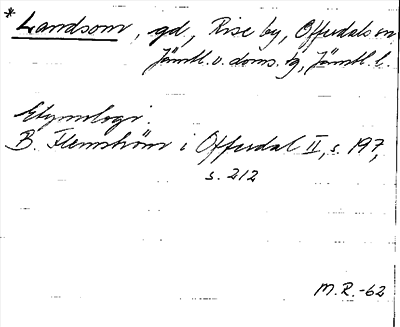 * Landsom, gd, Rise by, Offerdals sn
Jämtl. v. doms. tg, Jämtl. l.
Etymologi.
B. Flemström i Offerdal II, s. 197,
s. 212
M.R.-62